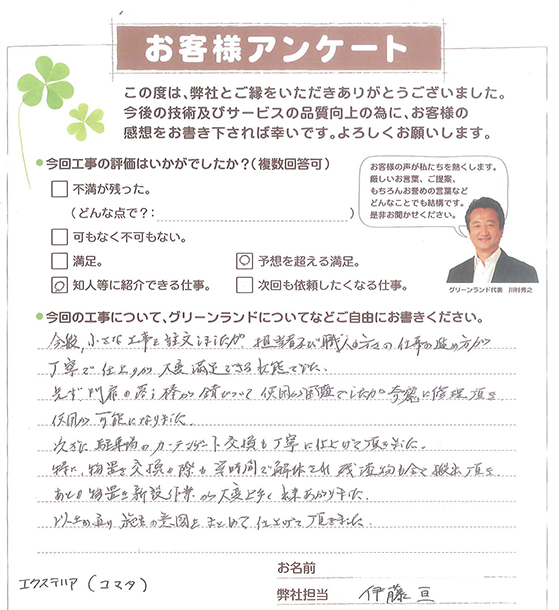 お客様アンケート
この度は、弊社とご縁をいただきありがとうございました。
今後の技術及びサービスの品質向上の為に、お客様の
感想をお書き下されば幸いです。よろしくお願いします。
今回工事の評価はいかがでしたか？(複数回答可)
不満が残った。
(どんな点で？： )
可もなく不可もない。
満足。
予想を超える満足。
知人等に紹介できる仕事。
次回も依頼したくなる仕事。
お客様の声が私たちを熱くします。
厳しいお言葉、ご提案、
もちろんお誉めの言葉など
どんなことでも結構です。
是非お聞かせください。
グリーンランド代表 川村秀之
今回の工事について、グリーンランドについてなどご自由にお書きください。
今般、小さな工事を注文しましたが、担当者及び職人の方々の仕事の進め方が
丁寧で仕上りが大変満足できる状態でした。
先ず門扉の落し棒が錆ついて使用が困難でしたが に修理頂き
使用が可能になりました。
次に駐車場のカーテンゲート交換も丁寧に仕上げて頂きました。
特に、物置を交換の際も 時間で解体され残渣物も全て搬出頂き
あとの物置き新設作業も大変上手く出来あがりました。
以上の通り施主の意図をまとめて仕上げて頂きました。
エクステリア (コマタ)
お名前
弊社担当 伊藤 亘